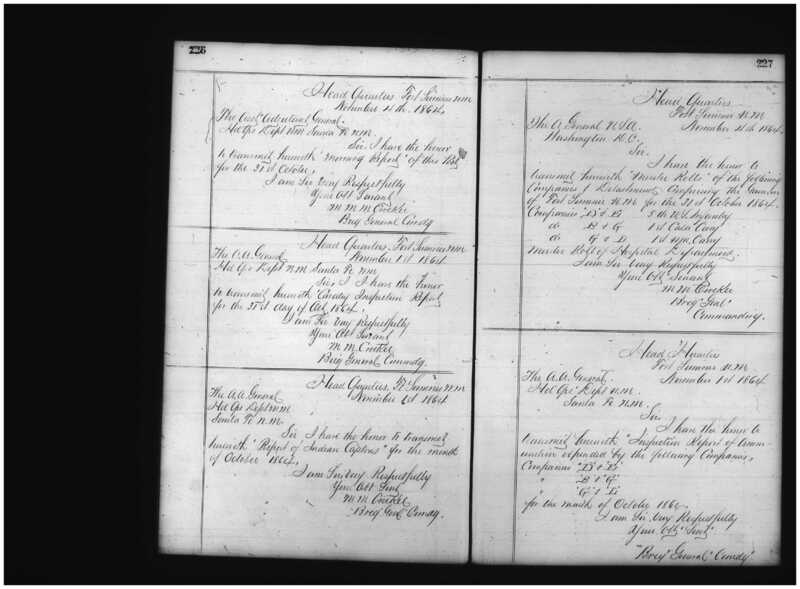 226
Head Quarters Fort Sumner N.M.
November 4th 1864
The Asst Adjutant General
Hd Qrs Dept N.M. Santa Fe N.M.
Sir I have the honor
to transmit herewith "Morning Report" of this Post
for the 31st October,
I am Sir Very Respectfully
Your Obt Servant
M M Crocker
Brig General Comdg
Head Quarters Fort Sumner N.M.
November 1st 1864
The A.A. General
Hd Qrs Dept N.M. Santa Fe N.M.
Sir I have the honor
to transmit herewith "Cavalry Inspection Report"
for the 31st day of Oct 1864.
I am Sir Very Respectfully
Your Obt Servant
M. M. Crocker
Brig General Commdg.
Head Quarters Ft Sumner N.M
November 1st 1864
The A.A. General
Hd Qrs Dept N.M
Santa Fe N.M.
Sir I have the honor to transmit
herewith "Report of Indian Captives" for the month
of October 1864,
I am Sir Very Respectfully
Your Obt Servt
M.M. Crocker
Brig Genl Comdg.
227
Head Quarters
Fort Sumner N.M.
November 4th 1864
The A General U.S.A.
Washington D.C.
Sir.
I have the honor to
transmit herewith "Muster Rolls" of the following
Companies & Detachment Comprising the Garrison
of Fort Sumner N.M. for the 31st October 1864.
Companies "D & G" 5th U.S. Infantry
do B & G 1st Cala Cavy
do G & L 1st N.M. Cavy
Muster Roll of Hospital Department.
I am Sir Very Respectfully
Your Obt Servant
M M Crocker
Brig "Genl"
Commanding.
Head Quarters
Fort Sumner N.M.
November 1st 1864.
The A.A. General.
Hd Qrs Dept N.M.
Santa Fe N.M.
Sir.
I have the honor to
transmit herewith "Inspection Report of Amm-
unition expended by the following Companies,
Companies
" B & G
"
for the month of October 1864
I am Sir Very Respectfully
Your Obt "Servt"
"Brig" General "Comdg"